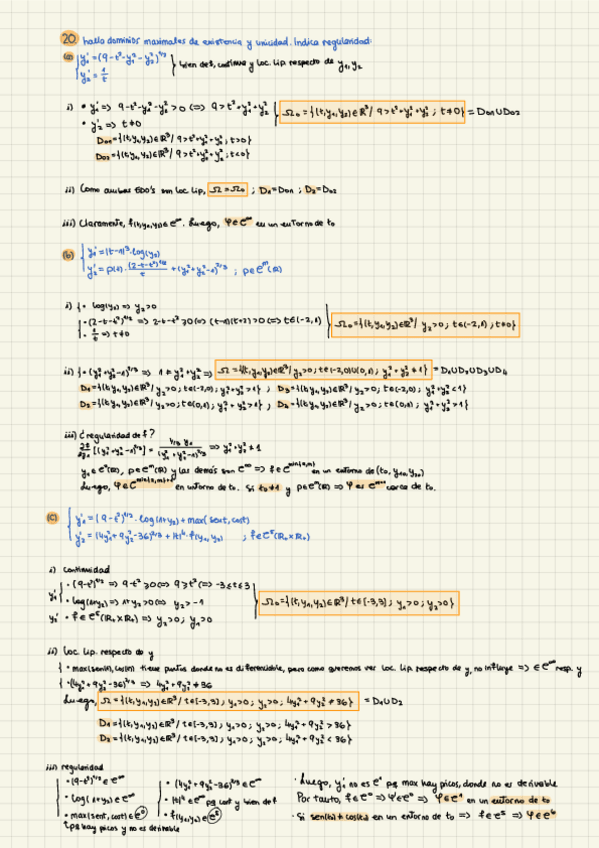 20 halla dominios maximales de existencia y unicidad. Indica regularidad:
(a) { y₁' = (9-t²-y₁²-y₂²)^3/2
y₂' = 1/t } bien def, continua y loc. Lip. respecto de y₁, y₂
i) • y₁' => 9-t²-y₁²-y₂² > 0 <=> 9 > t²+y₁²+y₂²
• y₂' => t≠0
Ω₀ = {(t,y₁,y₂)∈ℝ³/ 9 > t²+y₁²+y₂² ; t≠0} = D₀₁∪D₀₂
D₀₁ = {(t,y₁,y₂)∈ℝ³/ 9 > t²+y₁²+y₂² ; t>0}
D₀₂ = {(t,y₁,y₂)∈ℝ³/ 9 > t²+y₁²+y₂² ; t<0}
ii) Como ambas EDO's son loc Lip, Ω = Ω₀ ; D₁ = D₀₁ ; D₂ = D₀₂
iii) Claramente, f(t,y₁,y₂)∈C^∞. Luego, φ∈C^∞ en un entorno de t₀
(b) { y₁' = |t-1|³·log(y₂)
y₂' = p(t)·(2-t-t²)^1/2 / t + (y₁²+y₂²-1)^2/3 ; p∈C^m(ℝ)
i) { • log(y₂) => y₂>0
• (2-t-t²)^1/2 => 2-t-t² ≥0 <=> (t-1)(t+2)>0 <=> t∈(-2,1)
• 1/t => t≠0
Ω₀ = {(t,y₁,y₂)∈ℝ³/ y₂>0 ; t∈(-2,1) ; t≠0}
ii) { • (y₁²+y₂²-1)^2/3 => 1≠y₁²+y₂² => Ω = {(t,y₁,y₂)∈ℝ³/ y₂>0 ; t∈(-2,0)∪(0,1) ; y₁²+y₂²≠1} = D₁∪D₂∪D₃∪D₄
D₁ = {(t,y₁,y₂)∈ℝ³/ y₂>0 ; t∈(-2,0) ; y₁²+y₂²>1} ; D₃ = {(t,y₁,y₂)∈ℝ³/ y₂>0 ; t∈(-2,0) ; y₁²+y₂²<1}
D₂ = {(t,y₁,y₂)∈ℝ³/ y₂>0 ; t∈(0,1) ; y₁²+y₂²>1} ; D₄ = {(t,y₁,y₂)∈ℝ³/ y₂>0 ; t∈(0,1) ; y₁²+y₂²>1}
iii) ¿regularidad de f?
[(y₁²+y₂²-1)^2/3] => y₁²+y₂²≠1
p∈C^m(ℝ) y las demás son C^∞ => f∈C^min en un entorno de (t₀, y₁₀, y₂₀)
Luego, φ∈C^min en un entorno de t₀. Si t₀≠1 y p∈C^m(ℝ) => φ es C^m+1 cerca de t₀.
(c) { y₁' = (9-t²)^1/2·log(1+y₂) + max(sent, cost)
y₂' = (4y₁²+9y₂²-36)^2/3 + |t|⁴·f(y₁,y₂) ; f∈C⁵(ℝ₊×ℝ₊)
i) continuidad
y₁' { • (9-t²)^1/2 => 9-t² ≥0 <=> 9≥t² => -3≤t≤3
• log(1+y₂) => 1+y₂>0 <=> y₂>-1
y₂' • f∈C⁵(ℝ₊×ℝ₊) => y₂>0 ; y₁>0
Ω₀ = {(t,y₁,y₂)∈ℝ³/ t∈[-3,3] ; y₁>0 ; y₂>0}
ii) loc. Lip. respecto de y
{ • max(sen(t),cos(t)) tiene puntos donde no es diferenciable, pero como queremos ver loc. Lip. respecto de y, no influye => ∈C^∞ resp. y
• (4y₁²+9y₂²-36)^2/3 => 4y₁²+9y₂²≠36
Luego, Ω = {(t,y₁,y₂)∈ℝ³/ t∈[-3,3] ; y₁>0 ; y₂>0 ; 4y₁²+9y₂²≠36} = D₁∪D₂
D₁ = {(t,y₁,y₂)∈ℝ³/ t∈[-3,3] ; y₁>0 ; y₂>0 ; 4y₁²+9y₂²>36}
D₂ = {(t,y₁,y₂)∈ℝ³/ t∈[-3,3] ; y₁>0 ; y₂>0 ; 4y₁²+9y₂²<36}
iii) regularidad
• (9-t²)^1/2∈C^∞
• log(1+y₂)∈C^∞
• max(sent, cost)∈C⁰
pq hay picos y no es derivable
• (4y₁²+9y₂²-36)^2/3∈C^∞
• |t|⁴∈C^∞ pq cont y bien def
• f(y₁,y₂)∈C⁵
• Luego, y₁' no es C¹ pq max hay picos, donde no es derivable
Por tanto, f∈C⁰ => φ'∈C⁰ => φ∈C¹ en un entorno de t₀
• Si sen(t₀)≠cos(t₀) en un entorno de t₀ => f∈C⁵ => φ∈C⁶